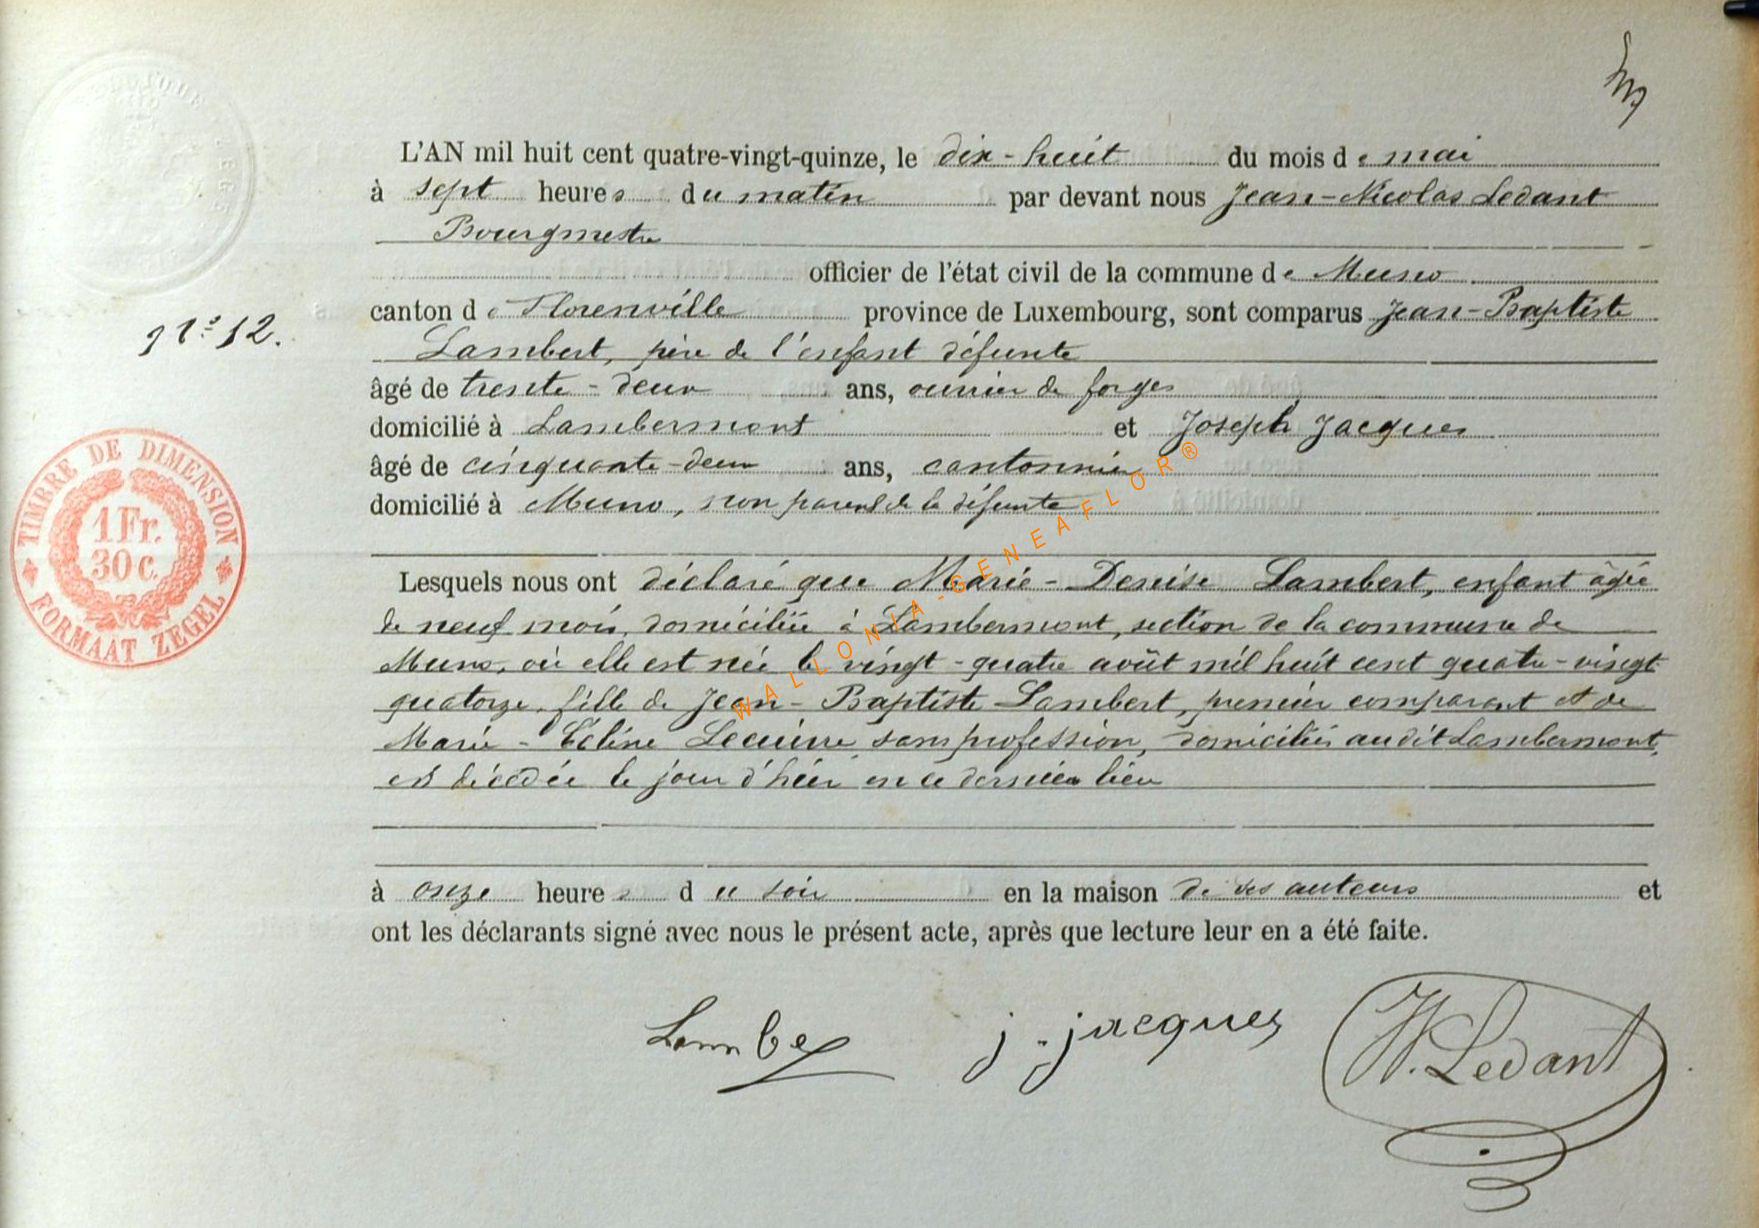 L'AN mil huit cent quatre-vingt-quinze, le dix-huit du mois de mai
à sept heures du matin par devant nous Jean-Nicolas Ledant
Bourgmestre
officier de l'état civil de la commune de Muno
N° 12.
canton de Florenville province de Luxembourg, sont comparus Jean-Baptiste
Lambert, père de l'enfant défunte
âgé de trente-deux ans, ouvrier de forges
domicilié à Lambermont et Joseph Jacques
âgé de cinquante-deux ans, cantonnier
domicilié à Muno, non parent de la défunte
TIMBRE DE DIMENSION
1 Fr.
30 c.
FORMAAT ZEGEL
Lesquels nous ont déclaré que Marie-Denise Lambert, enfant âgée
de neuf mois, domiciliée à Lambermont, section de la commune de
Muno, où elle est née le vingt-quatre août mil huit cent quatre-vingt
quatorze, fille de Jean-Baptiste Lambert, premier comparant et de
Marie- sans profession, domiciliés audit Lambermont,
est décédée le jour d'hier en ce dernier lieu
à onze heures du soir en la maison de ses auteurs et
ont les déclarants signé avec nous le présent acte, après que lecture leur en a été faite.
J. Jacques
Ledant
WALLONIA-GENEAFLOR®